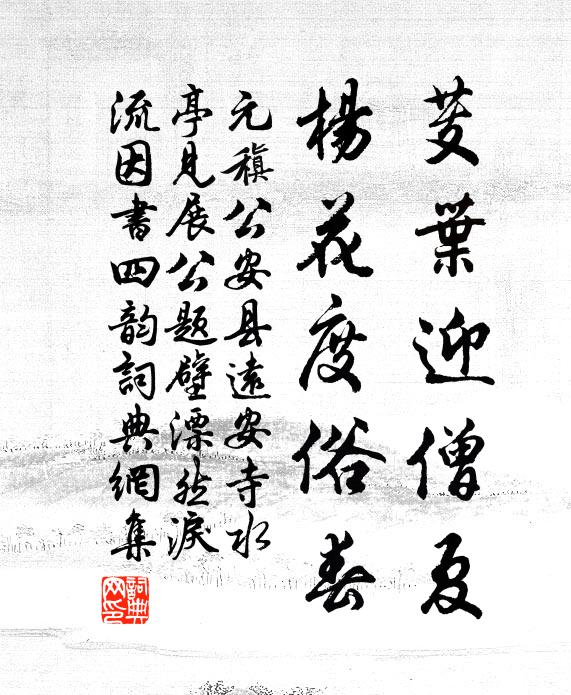 芰葉迎僧夏
楊花度俗春
元稹公安县遠安寺水
亭見展公題壁漂然淚
流因書四韵詞典網集
詞典网印